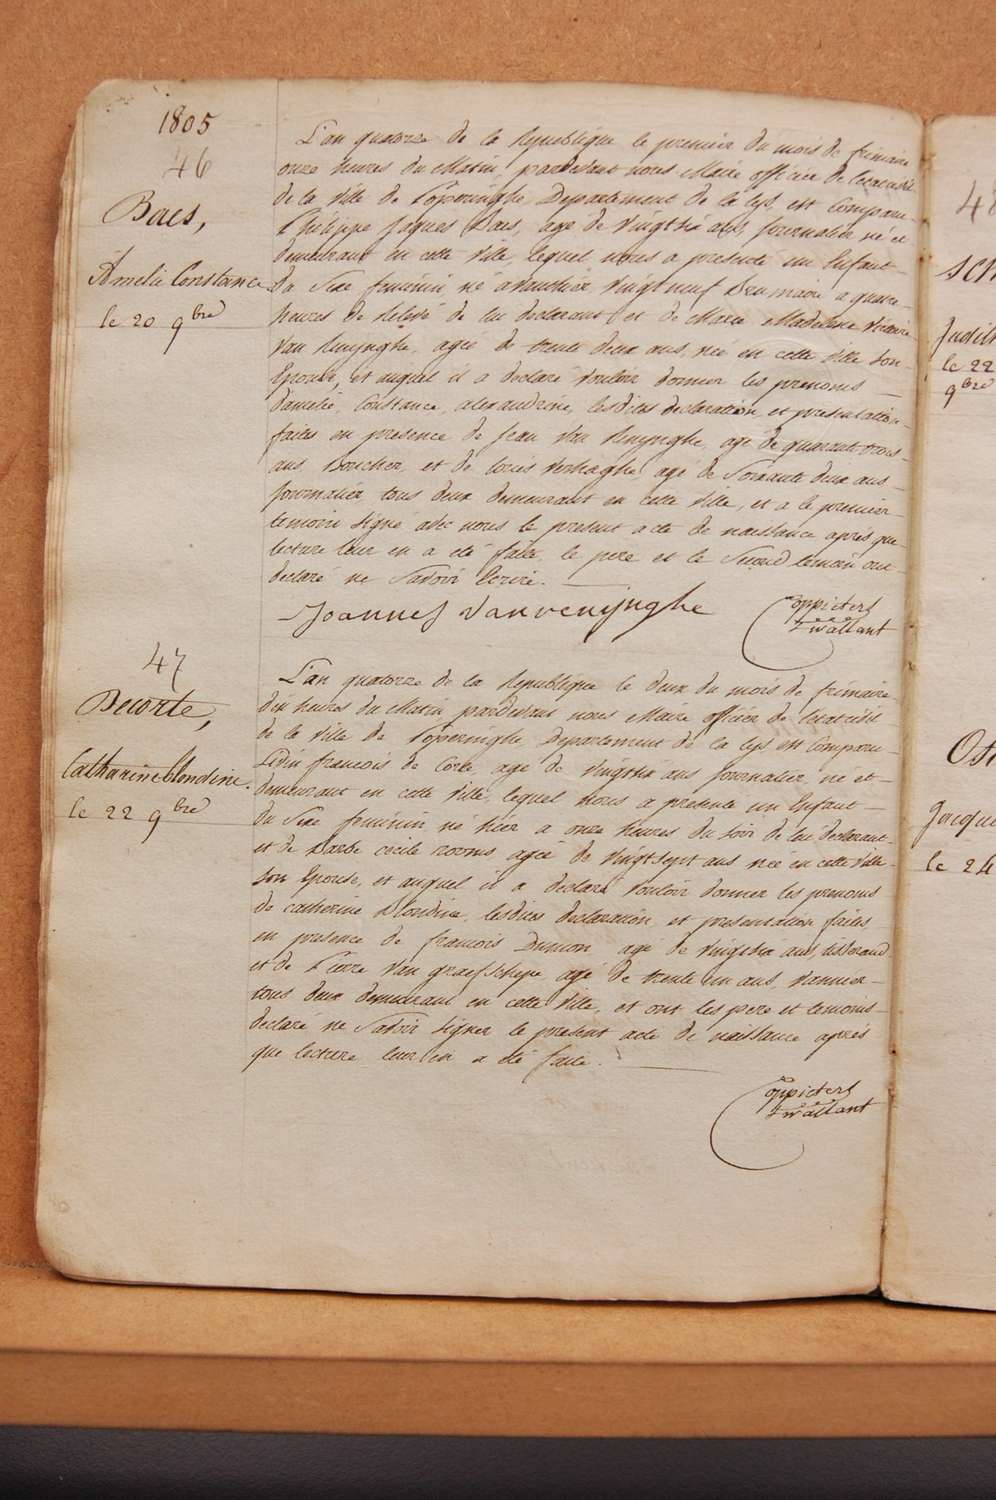 1805
46
Baes,
Amelie Constance
le 20 9bre
L'an quatorze de la Republique le premier du mois de frimaire
onze heures du Matin, pardevant nous Maire officier de l'etat civil
de la ville de Poperinghe Departement de la Lys, est comparu
Philippe Jaques Baes, agé de vingtsix ans, journalier né et
demeurant en cette ville, lequel nous a presenté un Enfant
du Sexe feminin né avanthier vingt neuf Brumaire a quatre
heures de relevé de lui declarant et de Marie Madelaine Victoire
Van Renynghe, agée de trente deux ans, née en cette ville son
Epouse, et auquel il a declaré vouloir donner les prenoms
d'amelie, Constance, alexandrine, lesdites declaration et presentation
faites en presence de Jean Van Renynghe, agé de quarante trois
ans, Boucher, et de Louis Verhaeghe, agé de Soixante deux ans
journalier tous deux demeurant en cette ville, et a le premier
temoin signé avec nous le present acte de naissance après que
lecture leur en a été faite, le pere et le Second temoin ont
declaré ne Savoir Ecrire.
Joannes Vanrenijnghe
Coppieters
t'wallant
47
Decorte,
Catharine blondine.
le 22 9bre
L'an quatorze de la Republique le deux du mois de frimaire
dix heures du Matin, pardevant nous Maire officier de l'etat civil
de la ville de Poperinghe, Departement de la Lys est comparu
Livin francois de Corte, agé de vingtsix ans journalier né et
demeurant en cette ville, lequel nous a presenté un Enfant
du Sexe feminin né hier à onze heures du soir de lui declarant
et de Barbe cecile rooms agée de vingtsept ans née en cette ville
son Epouse, et auquel il a declaré vouloir donner les prenoms
de catherine Blondine, lesdites declaration et presentation faites
en presence de francois Dumon, agé de vingtsix ans, tisserand
et de Pierre Van graefschepe agé de trente un ans, vannier
tous deux demeurant en cette ville, et ont les pere et temoins
declaré ne Savoir signer le present acte de naissance après
que lecture leur en a été faite.
Coppieters
t'wallant
48
Judith
le 22
9bre
Jacque
le 24